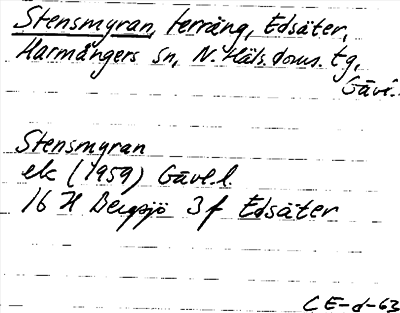 Stensmyran, terräng, Edsäter,
Harmångers sn, N. Häls. doms. tg,
Gävl.
Stensmyran
ek (1959) Gävl.l.
16 H Bergsjö 3f Edsäter
CE-d-63